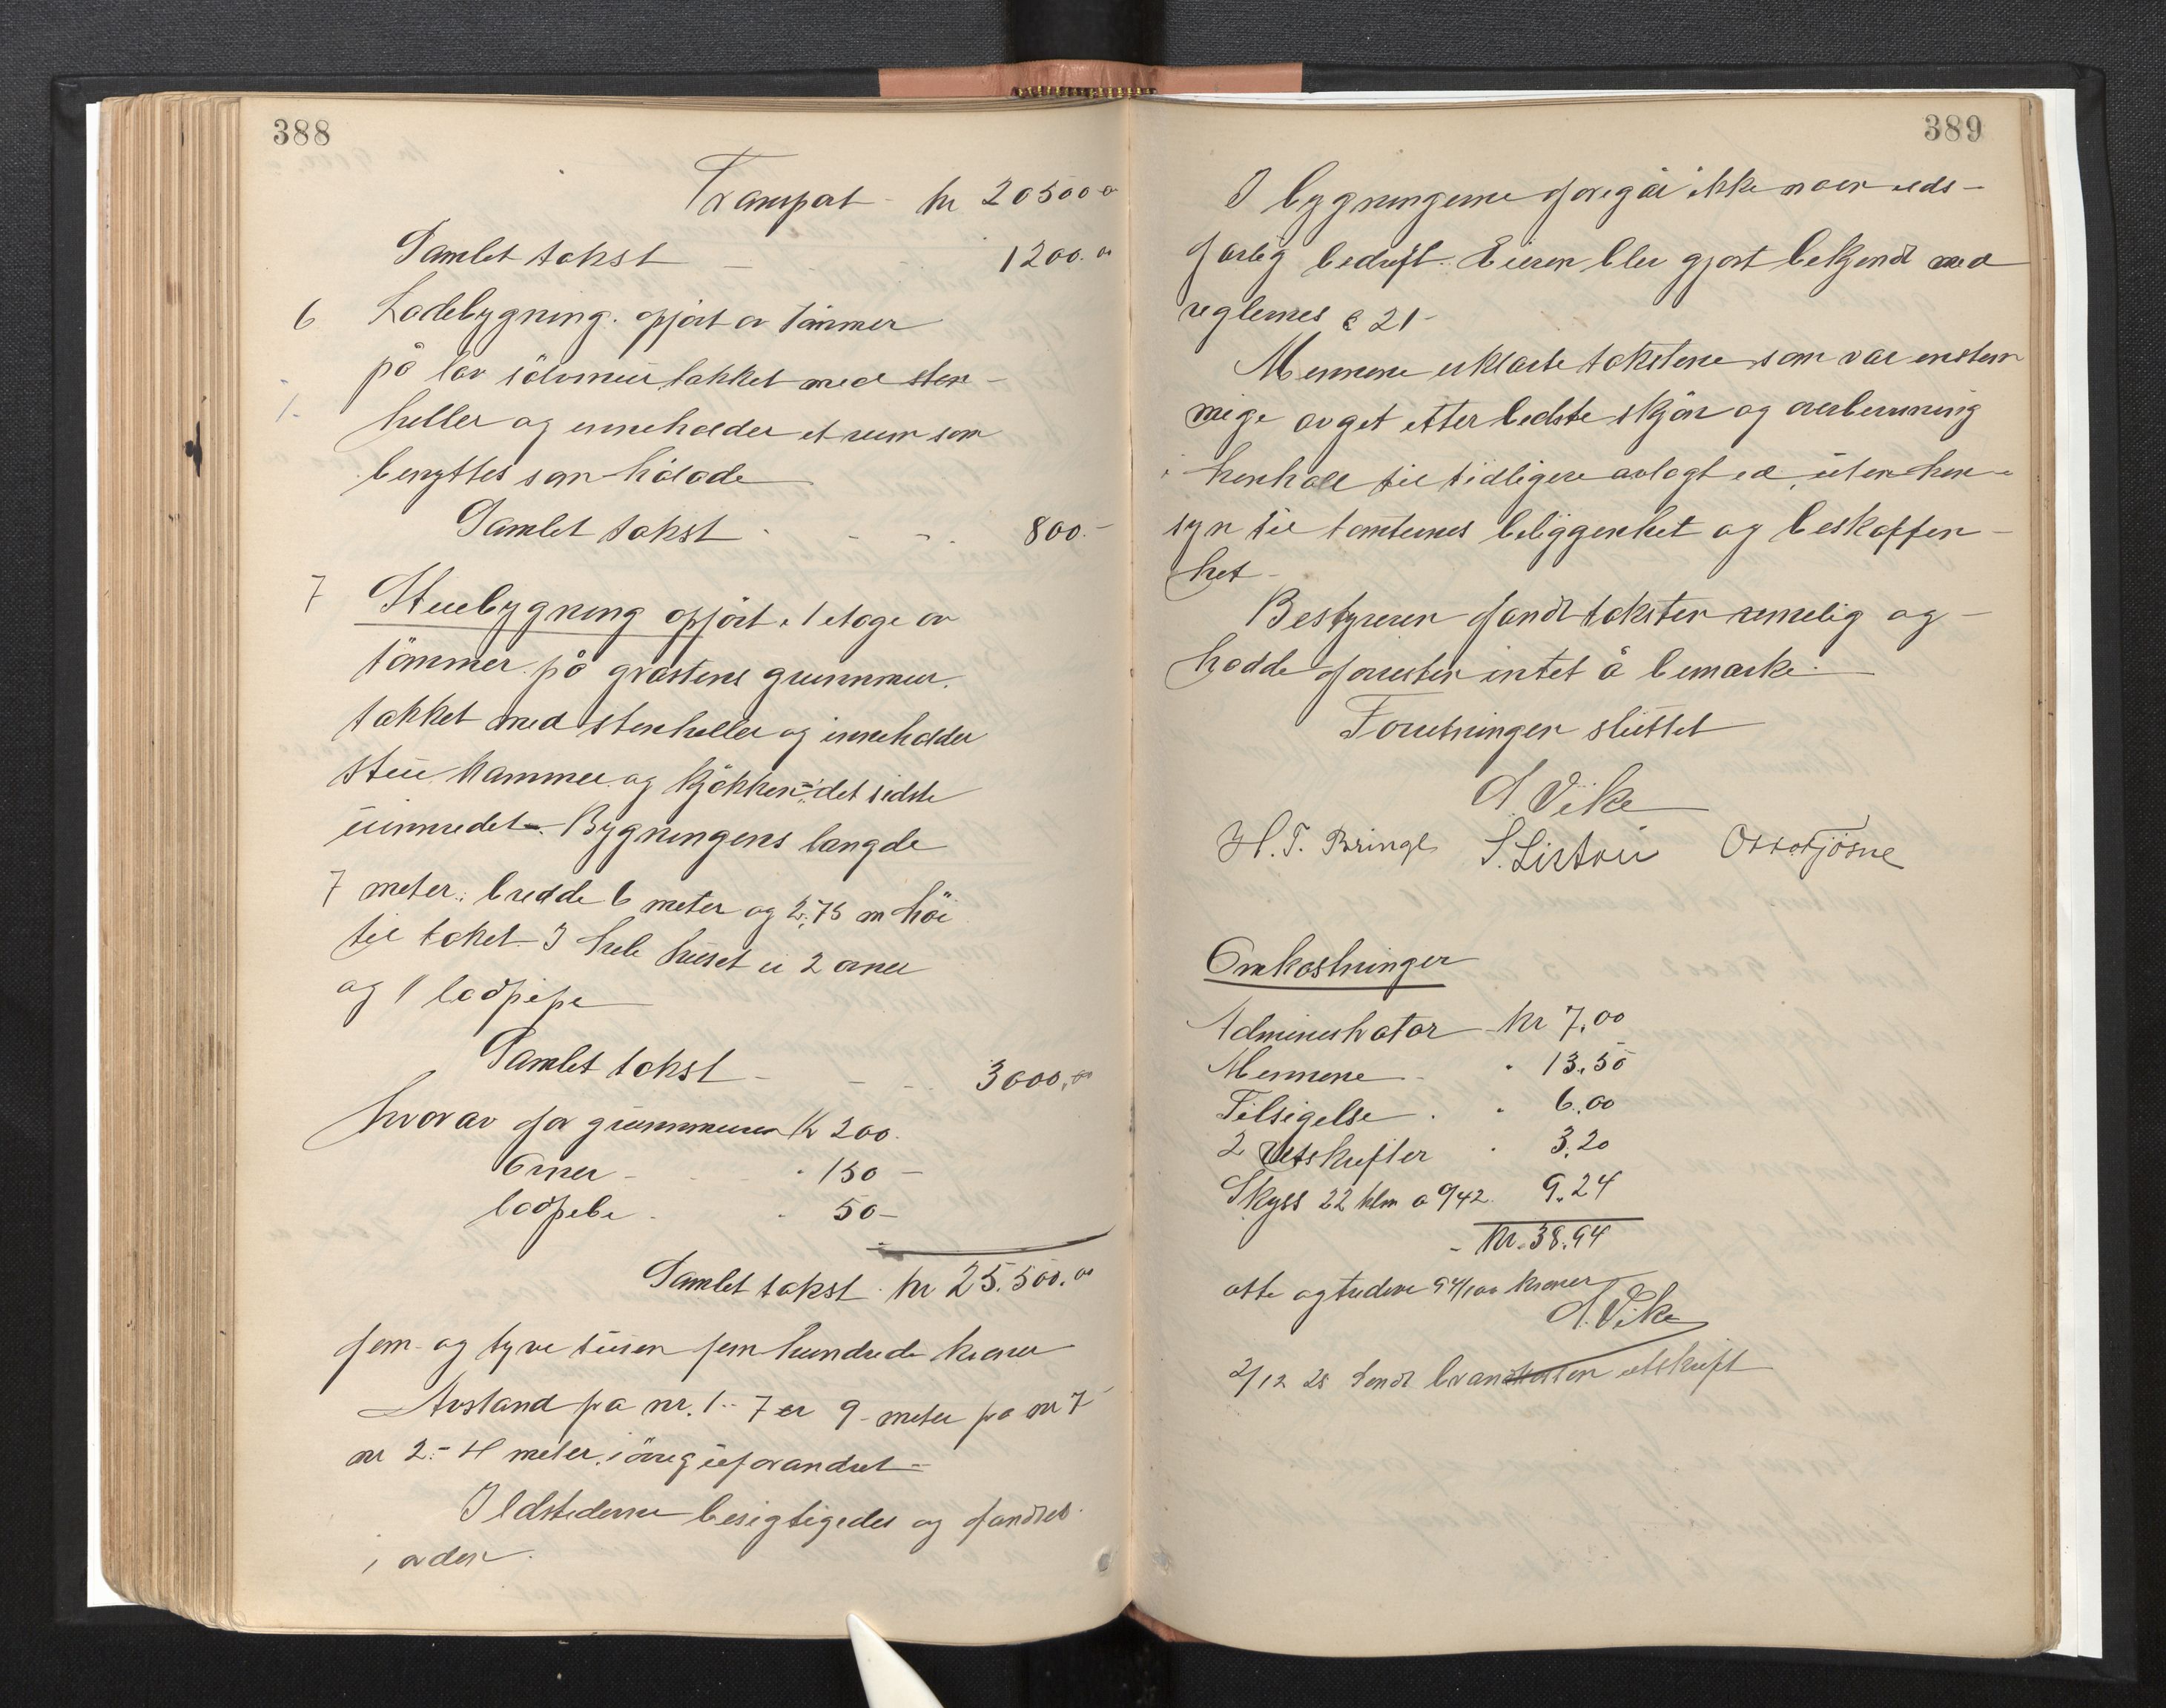 388
Transport - kr 20500 00
Samlet takst - - - 1200.00
6 Ladebygning. opført av tømmer
på lav stenmur, takket med sten-
heller og inneholder et rum som
benyttes som hölade
Samlet takst - - - 800.-
7 Stuebygning opført i 1 etage av
tömmer på gråstens grunnmur.
takket med stenheller og inneholder
stue kammer og kjökken, det sidste
uinnredet. Bygningens længde
7 meter: bredde 6 meter og 2,75 m höi
til taket. I hele huset er 2 ovner
og 1 lodpipe
Samlet takst - - - 3000,00
hvorav for grunnmuren Kr 200.
Ovner - - - " 150 -
lodpibe - - " 50 -
Samlet takst kr 25.500.00
fem- og tyve tusen fem hundrede kroner
Avstand fra nr. 1 - 7 er 9 - meter fra nr 7
nr 2 - 4 meter, iövrig uforandret -
Ildstederne besigtigedes og fandtes
i orden.
389
I bygningerne foregår ikke noen ilds-
farlig bedrift. Eieren blev gjort bekjendt med
reglernes § 21-
Mennene erklærte takstene som var enstem
mige avget etter bedste skjön og overbevisning
i henhold til tidligere avlagt ed, uten hen-
syn til tomtenes beliggenhet og beskaffen-
het -
Bestyreren fandt taksten rimelig og -
hadde forresten intet å bemærke.
Forretningen sluttet
A. Vike
H. T. Bringe S. Listou
Omkostninger
Administrator Kr 7,00
Mennene - " 13,50
Tilsigelse . " 6,00
2 Utskrifter " 3,20
Skyss 22 klm a 0/42. 9,24
- Kr. 38,94
otte og tredve 94/100 kroner
A. Vike
2/12 28 Sendt brandkassen utskrift